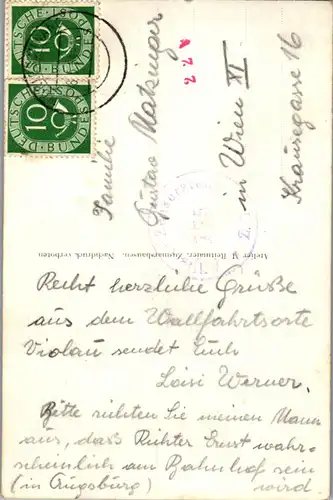 Familie
Gustav Matzinger
in Wien XI
Krausegasse 16
Recht herzliche Grüße
aus dem Wallfahrtsorte
Violau sendet Euch
Loisi Werner.
Bitte richten Sie meinen Mann
aus, daß Richter Ernst wahr-
scheinlich am Bahnhof sein
(in Augsburg) wird
Atelier M. Reitmaier, Zusmarshausen. Nachdruck verboten
DEUTSCHE BUNDESPOST
10
DEUTSCHE BUNDESPOST
10